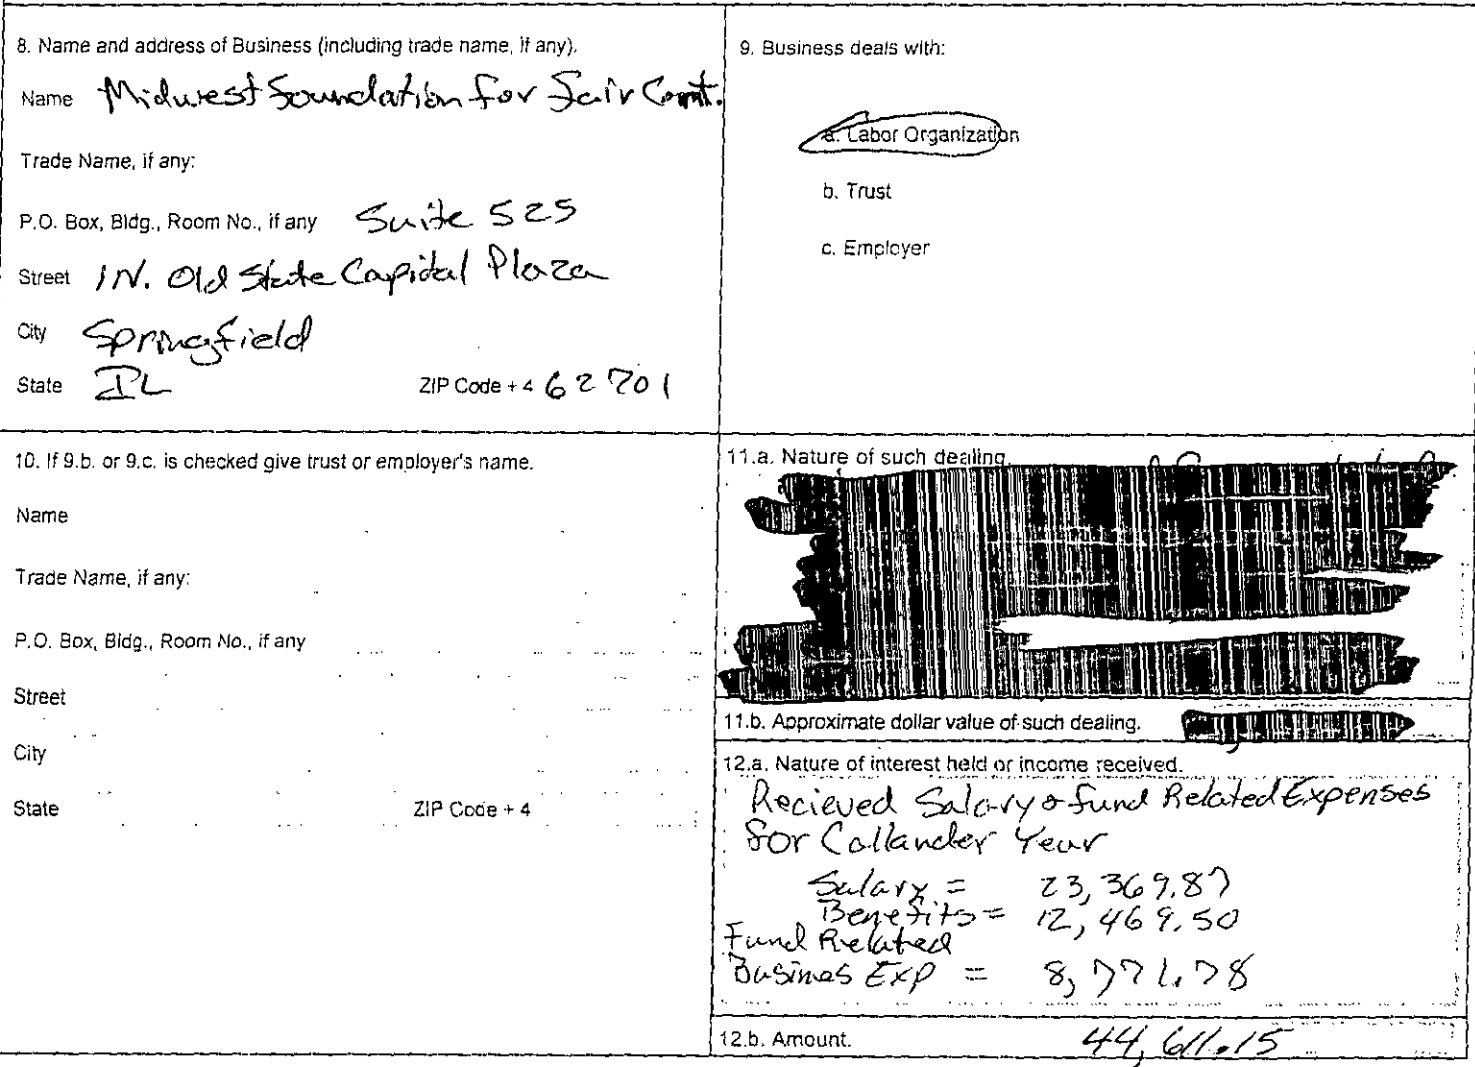 8. Name and address of Business (including trade name, if any).
Name Midwest Foundation for Fair Cont.
Trade Name, if any:
P.O. Box, Bldg., Room No., if any Suite 525
Street 1 N. Old State Capital Plaza
City Springfield
State IL ZIP Code + 4 62701
9. Business deals with:
a. Labor Organization
b. Trust
c. Employer
10. If 9.b. or 9.c. is checked give trust or employer's name.
Name
Trade Name, if any:
P.O. Box, Bldg., Room No., if any
Street
City
State ZIP Code + 4
11.a. Nature of such dealing.
11.b. Approximate dollar value of such dealing.
12.a. Nature of interest held or income received.
Recieved Salary & Fund Related Expenses
for Callander Year
Salary = 23,369.87
Benefits = 12,469.50
Fund Related
Busines Exp = 8,771.78
12.b. Amount. 44,611.15